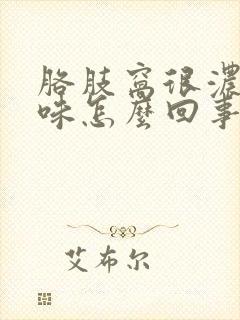 胳肢窝很濃
味怎麼回事
艾布尔